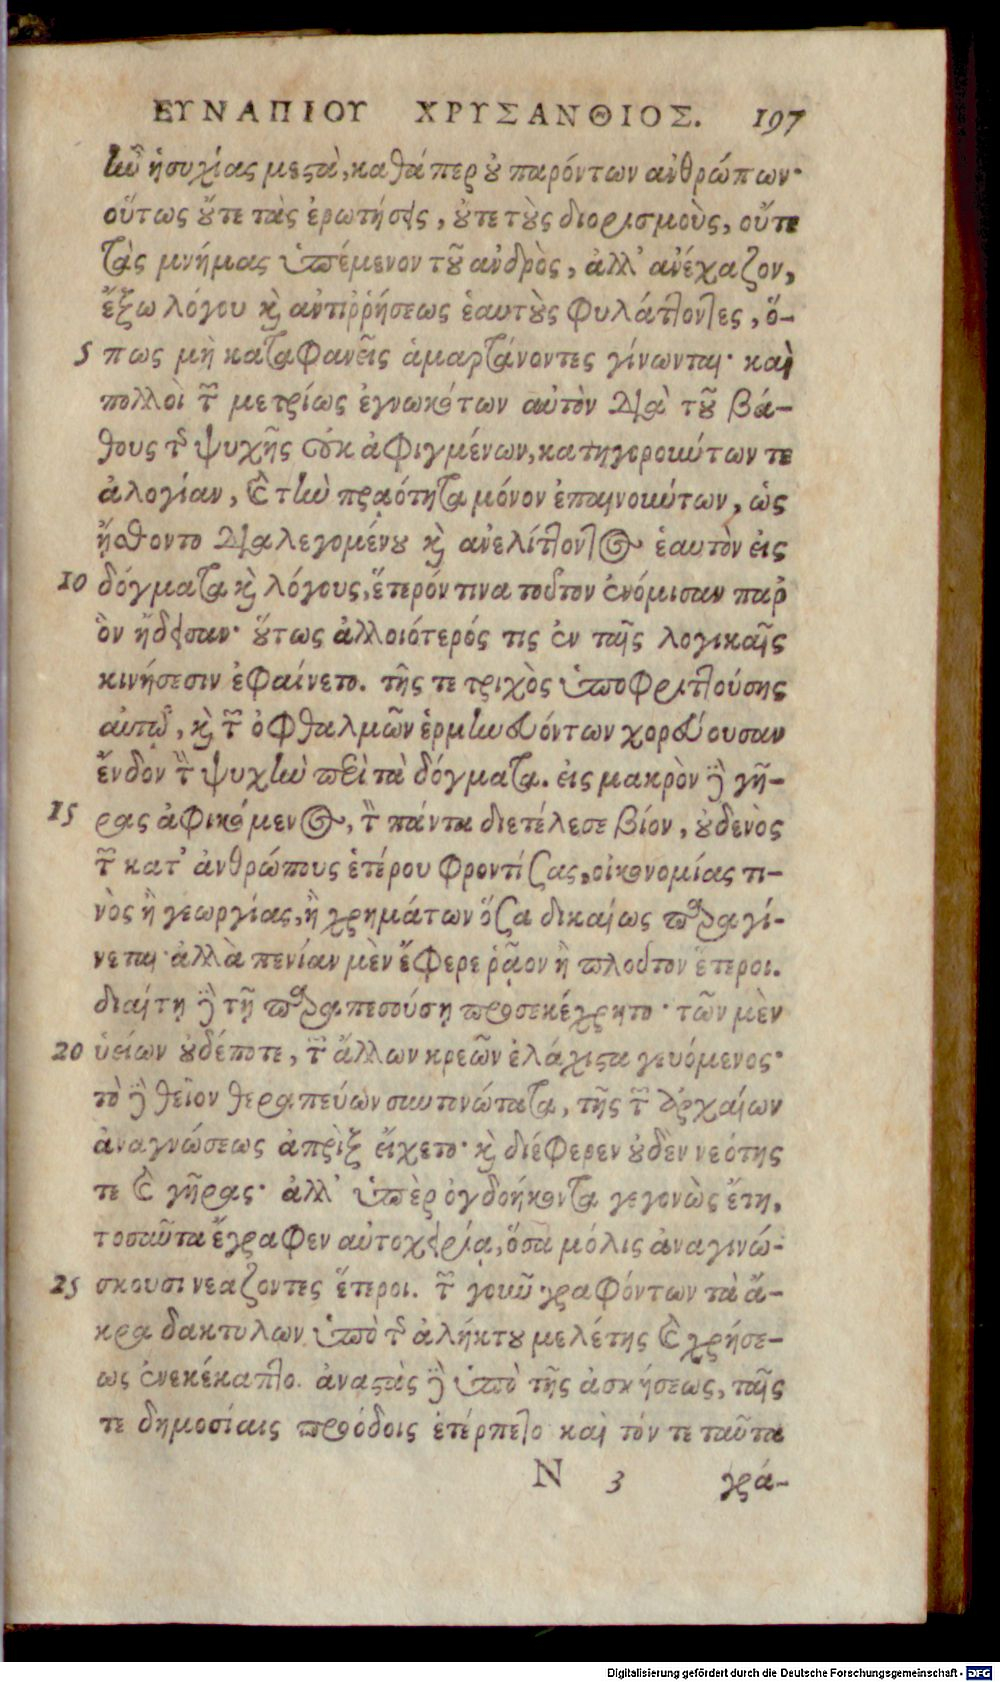 ΕΥΝΑΠΙΟΥ ΧΡΥΣΑΝΘΙΟΣ. 197
ἦν ἡσυχίας μεστὰ, καθάπερ οὐ παρόντων ἀνθρώπων·
οὕτως οὔτε τὰς ἐρωτήσεις, οὔτε τοὺς διορισμοὺς, οὔτε
τὰς μνήμας ὑπέμενον τοῦ ἀνδρὸς, ἀλλ' ἀνέχαζον,
ἔξω λόγου καὶ ἀντιῤῥήσεως ἑαυτοὺς φυλάττοντες, ὅ-
5 πως μὴ καταφανεῖς ἁμαρτάνοντες γίνωνται· καὶ
πολλοὶ τῶν μετρίως ἐγνωκότων αὐτὸν διὰ τοῦ βά-
θους τῆς ψυχῆς οὐκ ἀφιγμένων, κατηγορούντων τε
ἀλογίαν, καὶ τὴν πραότητα μόνον ἐπαινούντων, ὡς
ᾔσθοντο διαλεγομένου καὶ ἀνελίττοντος ἑαυτὸν εἰς
10 δόγματα καὶ λόγους, ἕτερόν τινα τοῦτον ἐνόμισαν παρ'
ὃν ᾔδεισαν· οὕτως ἀλλοιότερός τις ἐν ταῖς λογικαῖς
κινήσεσιν ἐφαίνετο. τῆς τε τριχὸς ὑποφριττούσης
αὐτῷ, καὶ τῶν ὀφθαλμῶν ἑρμηνευόντων χορεύουσαν
ἔνδον τὴν ψυχὴν περὶ τὰ δόγματα. εἰς μακρὸν δὲ γῆ-
15 ρας ἀφικόμενος, τὸν πάντα διετέλεσε βίον, οὐδενὸς
τῶν κατ' ἀνθρώπους ἑτέρου φροντίζας, οἰκονομίας τι-
νὸς ἢ γεωργίας, ἢ χρημάτων ὅσα δικαίως παραγί-
νεται· ἀλλὰ πενίαν μὲν ἔφερε ῥᾷον ἢ πλοῦτον ἕτεροι.
διαίτῃ δὲ τῇ παραπεσούσῃ προσεκέχρητο· τῶν μὲν
20 ὑείων οὐδέποτε, τῶν ἄλλων κρεῶν ἐλάχιστα γευόμενος·
τὸ δὲ θεῖον θεραπεύων συντονώτατα, τῆς τῶν ἀρχαίων
ἀναγνώσεως ἀπρὶξ εἴχετο· καὶ διέφερεν οὐδὲν νεότης
τε καὶ γῆρας· ἀλλ' ὑπὲρ ὀγδοήκοντα γεγονὼς ἔτη,
τοσαῦτα ἔγραφεν αὐτοχειρίᾳ, ὅσα μόλις ἀναγινώ-
25 σκουσι νεαζοντες ἕτεροι. τῶν γοῦν γραφόντων τὰ ἄ-
κρα δακτυλων ὑπὸ τῆς ἀλήκτου μελέτης καὶ χρήσε-
ως ἐνεκέκαπτο. ἀναστὰς δὲ ὑπὸ τῆς ἀσκήσεως, ταῖς
τε δημοσίαις προόδοις ἐτέρπετο καὶ τόν τε ταῦτα
N 3 γρά-
Digitalisierung gefördert durch die Deutsche Forschungsgemeinschaft - DFG